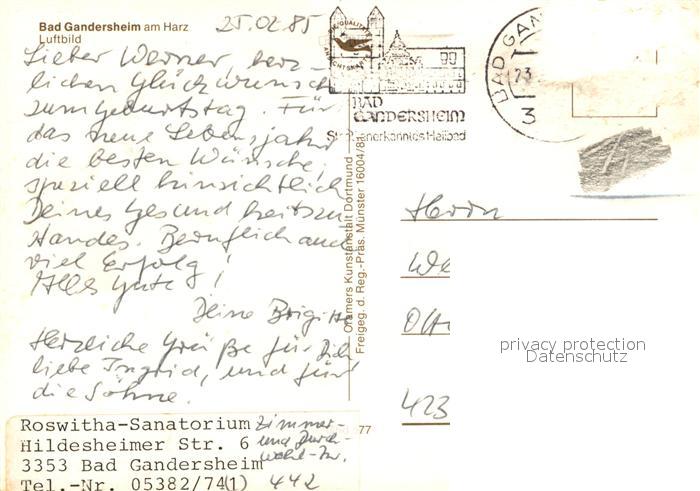 Bad Gandersheim am Harz
Luftbild
25.02.85
Lieber Werner, herz-
lichen Glückwunsch
zum Geburtstag. Für
das neue Lebensjahr
die besten Wünsche,
speziell hinsichtlich
Deines Gesundheitszu
standes. Beruflich auch
viel Erfolg!
Alles Gute!
Deine Brigitte
Herzliche Grüße für Dich
liebe Ingrid, und für
die Söhne.
Roswitha-Sanatorium
Hildesheimer Str. 6
3353 Bad Gandersheim
Tel.-Nr. 05382/74(1) 442
Zimmer-
und Durch-
wahl-Nr.
77
Cramers Kunstanstalt Dortmund
Freigeg. d. Reg.-Präs. Münster 16004/8
BAD
GANDERSHEIM
Staatl. anerkanntes Heilbad
BAD GAN
23.
3
Herrn
We
Ott
423
privacy protection
Datenschutz